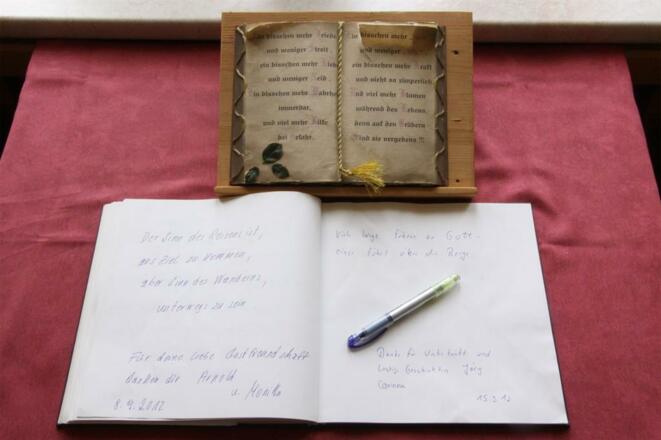 Ein bisschen mehr Friede
und weniger Streit,
ein bisschen mehr Liebe
und weniger Neid,
Ein bisschen mehr Wahrheit
immerdar,
und viel mehr Hilfe
bei Gefahr.
Ein bisschen mehr
und weniger
ein bisschen mehr Kraft
und nicht so zimperlich
Und viel mehr Blumen
während des Lebens,
denn auf den Gräbern
Sind sie vergebens !!!
Der Sinn des Reisens ist,
ans Ziel zu kommen,
aber Sinn des Wanderns,
unterwegs zu sein
Für deine liebe Gastfreundschaft
danken dir Arnold
u. Monika
8.9.2012
Viele Wege führen zu Gott -
einer führt über die Berge
Danke für Unterkunft und
lustige Geschichten Jörg